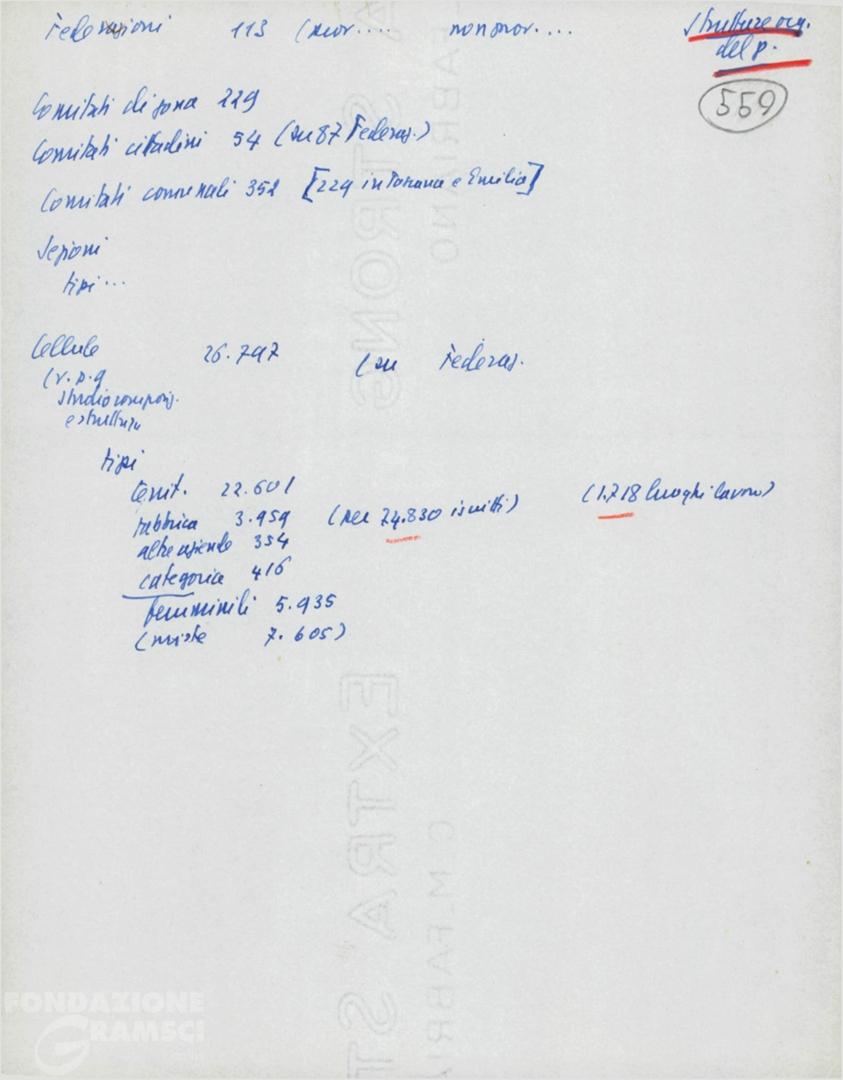 Federazioni 113 (prov.... non prov....
strutture org.
del p.
559
Comitati di zona 229
Comitati cittadini 54 (su 87 Federaz.)
Comitati comunali 352 [229 in Toscana e Emilia]
Sezioni
tipi...
Cellule 26.797 (su Federaz.
(v. p. 9
studio compos.
e struttura
tipi
territ. 22.601
fabbrica 3.959 (per 74.830 iscritti) (1.718 luoghi lavoro)
altre aziende 354
categoria 416
femminili 5.935
(miste 7.605)
FABRIANO
EXTRA STRONG
C.M. FABRIANO
EXTRA ST
FONDAZIONE
GRAMSCI